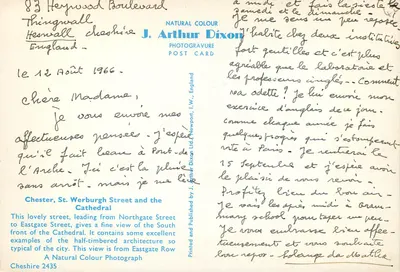 83 Heywood Boulevard
Thingwall
Heswall Cheshire
England.
le 12 Août 1966.
Chère Madame,
je vous envoie mes
affectueuses pensées. J'espère
qu'il fait beau à Pont-de-
l'Arche. Ici c'est la pluie
sans arrêt. mais je me lève
NATURAL COLOUR
J. Arthur Dixon
PHOTOGRAVURE
POST CARD
Printed and Published by J. Arthur Dixon Ltd., Newport, I.W., England
Chester, St. Werburgh Street and the
Cathedral
This lovely street, leading from Northgate Street
to Eastgate Street, gives a fine view of the South
front of the Cathedral. It contains some excellent
examples of the half-timbered architecture so
typical of the city. This view is from Eastgate Row
A Natural Colour Photograph
Cheshire 2435
à midi et fais la sieste le
samedi et le dimanche.
Je me sens un peu reposée
J'habite chez deux institutrices
fort gentilles et c'est plus
agréable que le laboratoire et
les professeurs anglais. Comment
va Odette? Je lui envoie mon
exercice d'anglais de ce jour.
comme chaque année je fais
quelques progrès qui s'estomperont
vite à Paris. Je rentrerai le
15 Septembre et j'espère avoir
le plaisir de vous revoir.
Profitez bien du bon air
Je vais les après midi à
mary school pour taper un peu.
Je vous embrasse bien affec-
tueusement et vous souhaite
bon repos. Solange